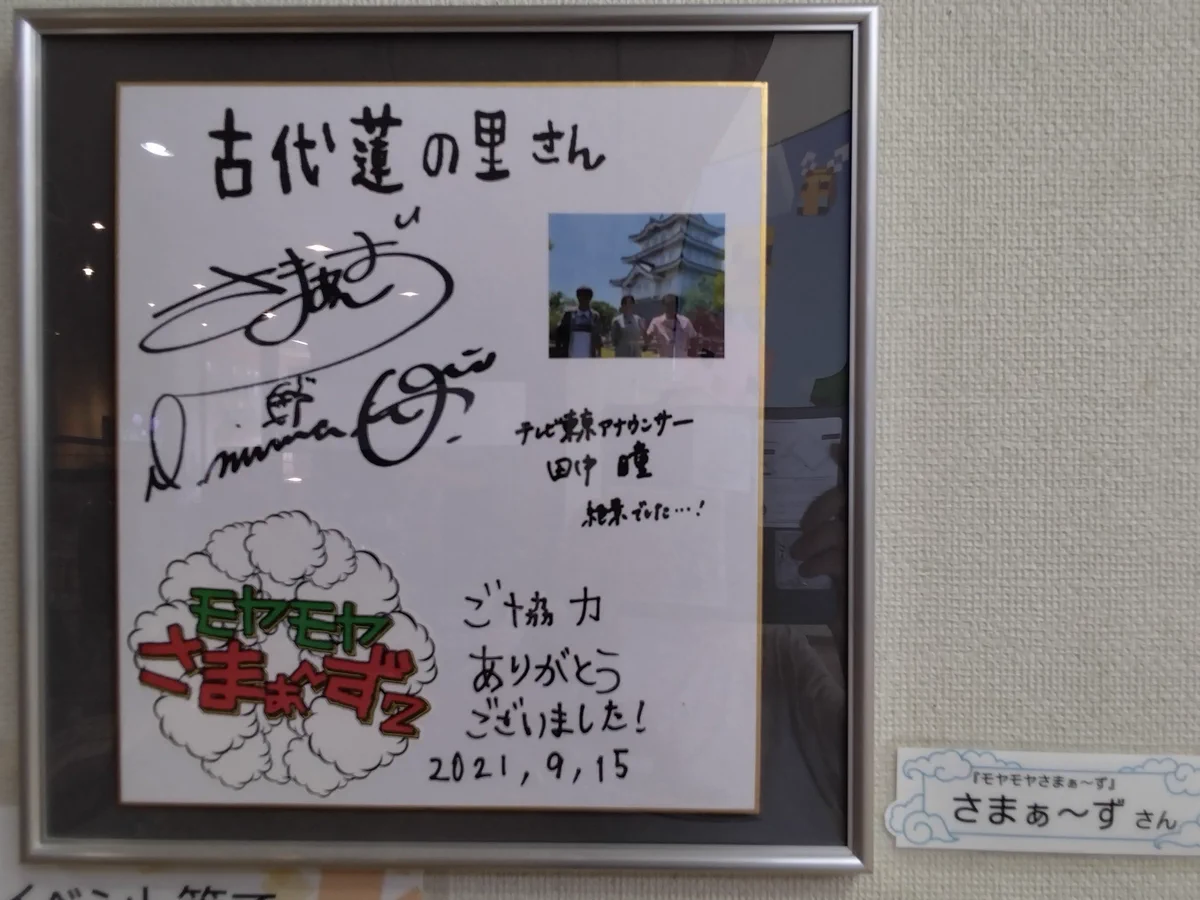 古代蓮の里さん
さまぁ〜ず
テレビ東京アナウンサー
田中 瞳
絶景でした…!
モヤモヤ
さまぁ〜ず2
ご協力
ありがとう
ございました!
2021,9,15
『モヤモヤさまぁ〜ず』
さまぁ〜ず さん